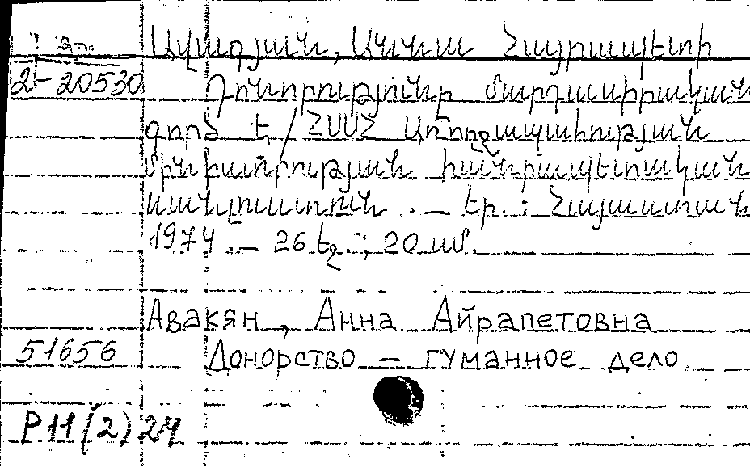 Ավագյան, Աննա Հայրապետի
2-20530 Դոնորությունը մարդասիրական
գործ է / ՀՍՍՀ Առողջապահության
մինիստրության հանրապետական
սանլուստուն. — Եր. : Հայաստան
1974. — 26 էջ ; 20 սմ.
Авакян, Анна Айрапетовна
51656 Донорство – гуманное дело
Р11(2)24